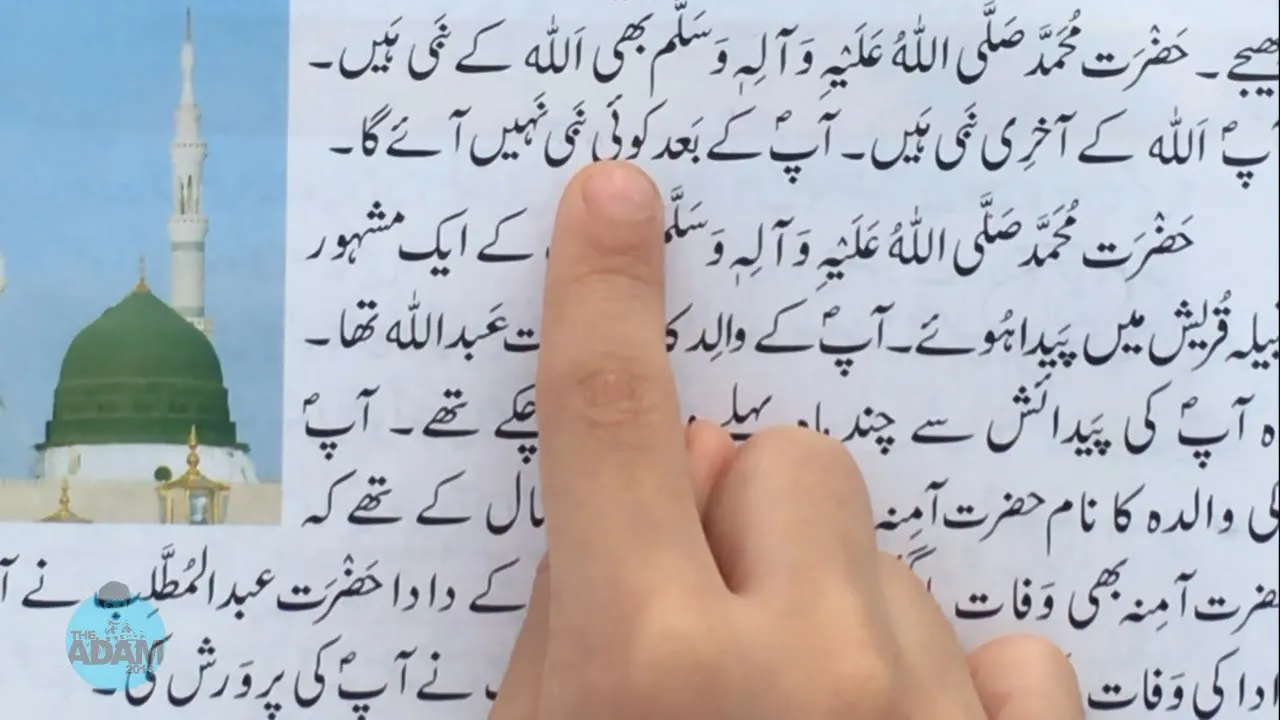 بھیجے۔ حَضْرَت مُحَمَّد صَلَّی اللہُ عَلَیْہِ وَآلِہٖ وَسَلَّم بھی اَللہ کے نَبی ہَیں۔
آپؐ اَللہ کے آخرِی نَبی ہَیں۔ آپؐ کے بَعد کوئی نَبی نَہیں آئے گا۔
حَضْرَت مُحَمَّد صَلَّی اللہُ عَلَیْہِ وَآلِہٖ وَسَلَّم کے ایک مشہور
قُریش میں پَیدا ہُوئے۔ آپؐ کے والِد عَبداللہ تھا۔
آپؐ کی پَیدائش سے چند پہلے چکے تھے۔ آپؐ
کی والدہ کا نام حضرت آمِنہ کے تھے کہ
حضرت آمِنہ بھی وَفات کے دادا حَضْرَت عبدالمُطَّلِب نے
کی وَفات نے آپؐ کی پروَرش کی۔
THE
ADAM